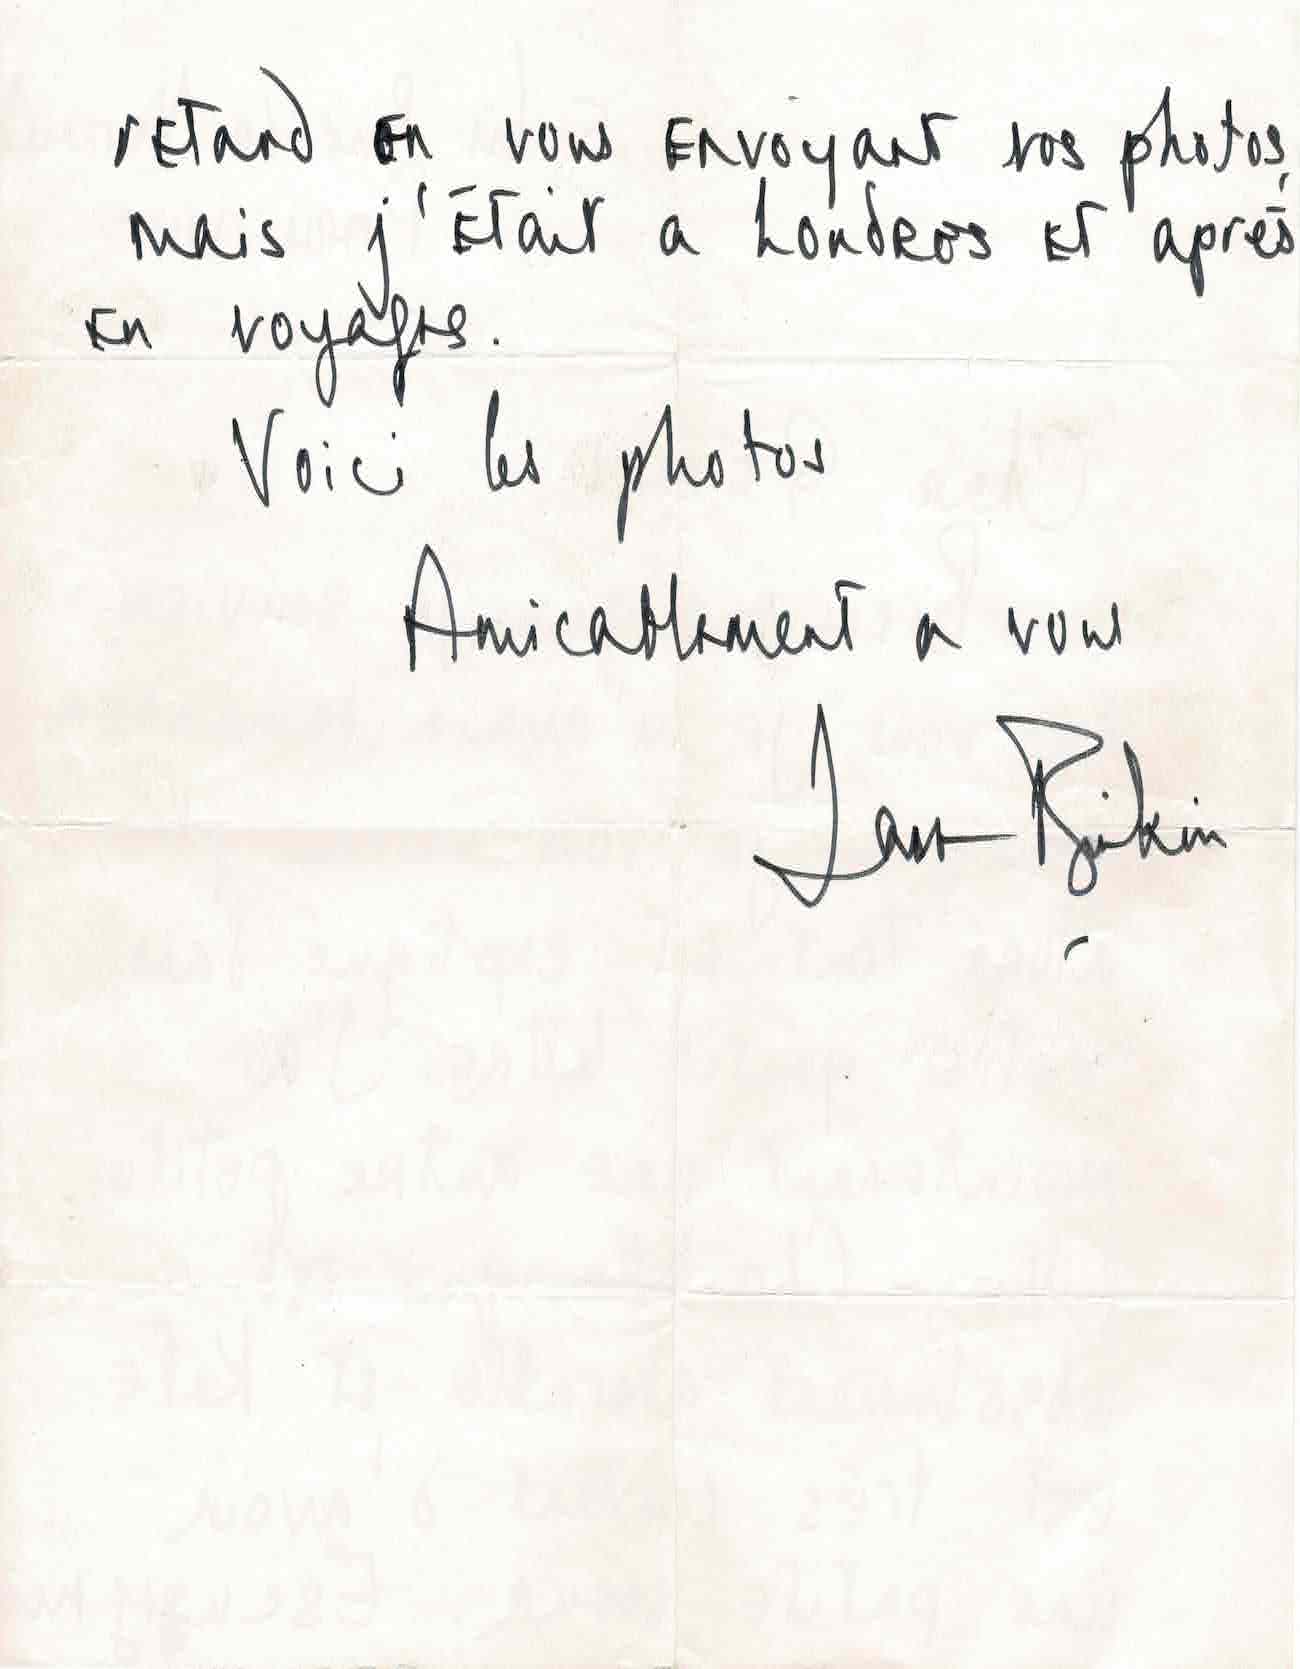 retard en vous envoyant vos photos,
mais j'était a Londres et après
en voyages.
Voici les photos
Amicablement a vous
Jane Birkin